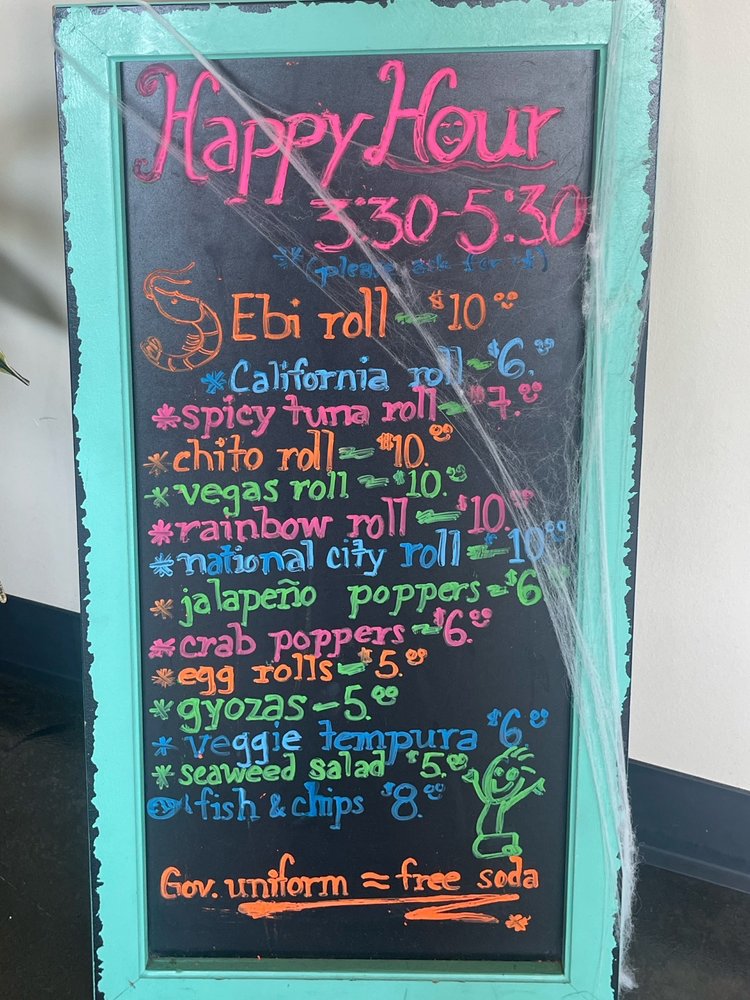 Happy Hour
3:30-5:30
*(please ask for it)
Ebi roll - $10.
*California roll - $6.
*spicy tuna roll - $7.
*chito roll - $10.
*vegas roll - $10.
*rainbow roll - $10.
*national city roll - $10.
*jalapeño poppers - $6
*crab poppers - $6.
*egg rolls - $5.
*gyozas - 5.
*veggie tempura $6.
*seaweed salad $5.
fish & chips $8.
Gov. uniform = free soda